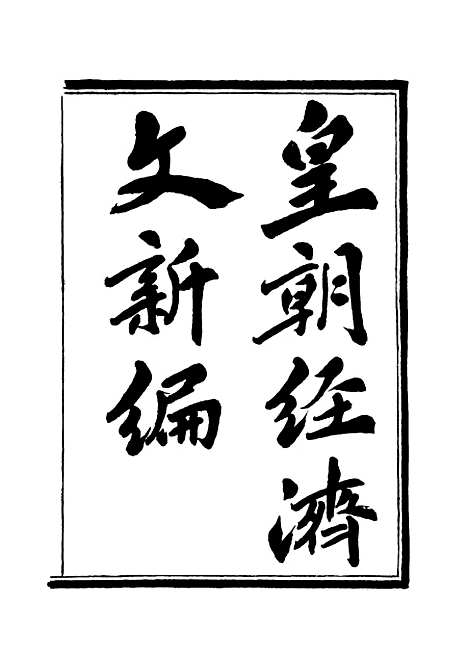 皇朝经濟
文新编